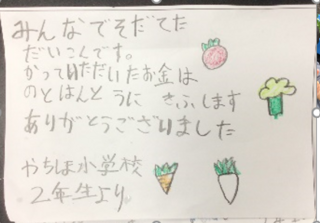 みんなでそだてた
だいこんです。
かっていただいたお金は
のとはんとうに きふします
ありがとうございました
やちほ小学校
2年生より